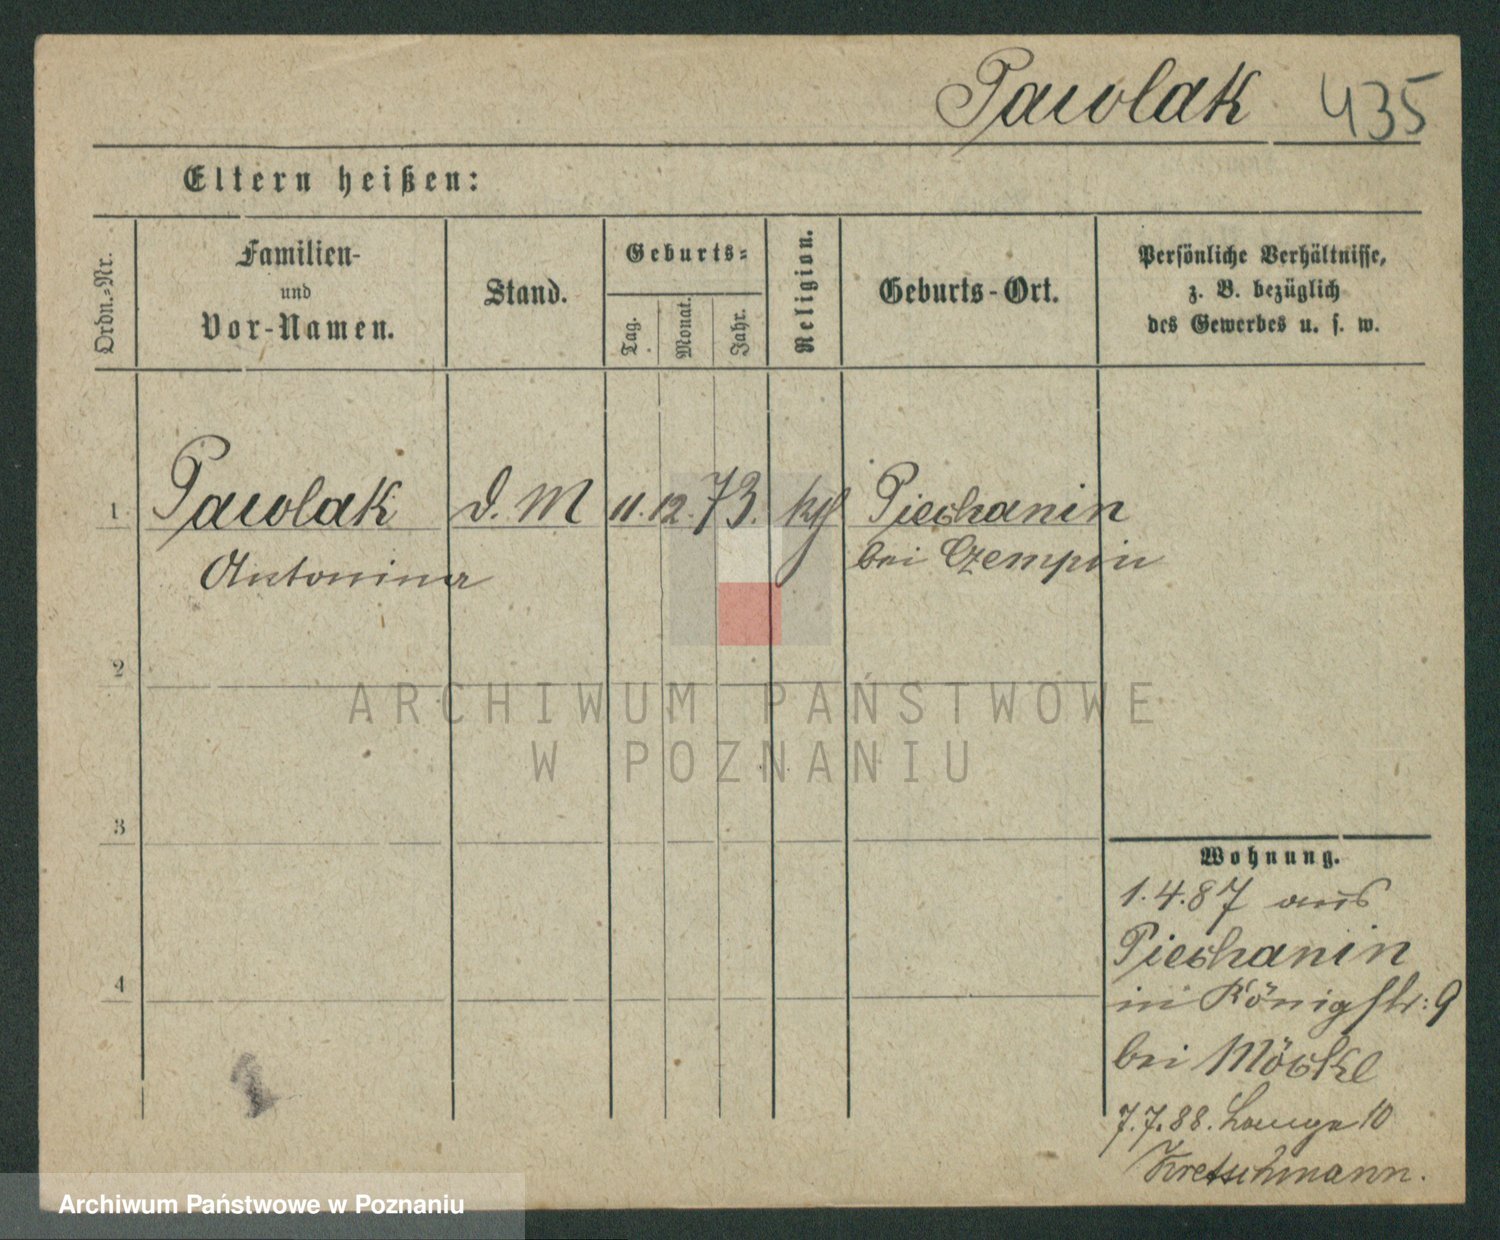 Pawolak 435
Eltern heißen:
Ordn.-Nr.
Familien-
und
Vor-Namen.
Stand.
Geburts-
Tag.
Monat.
Jahr.
Religion.
Geburts-Ort.
Persönliche Verhältnisse,
z. B. bezüglich
des Gewerbes u. s. w.
1. Pawolak d. M 11. 12. 73. kth Piechanin
Antonina bei Czempin
2
3
4
Wohnung.
1.4.87 aus
Piechanin
in Königstr: 9
bei Möckel
7.7.88. Lange 10
Kretschmann.
ARCHIWUM PAŃSTWOWE
W POZNANIU
Archiwum Państwowe w Poznaniu